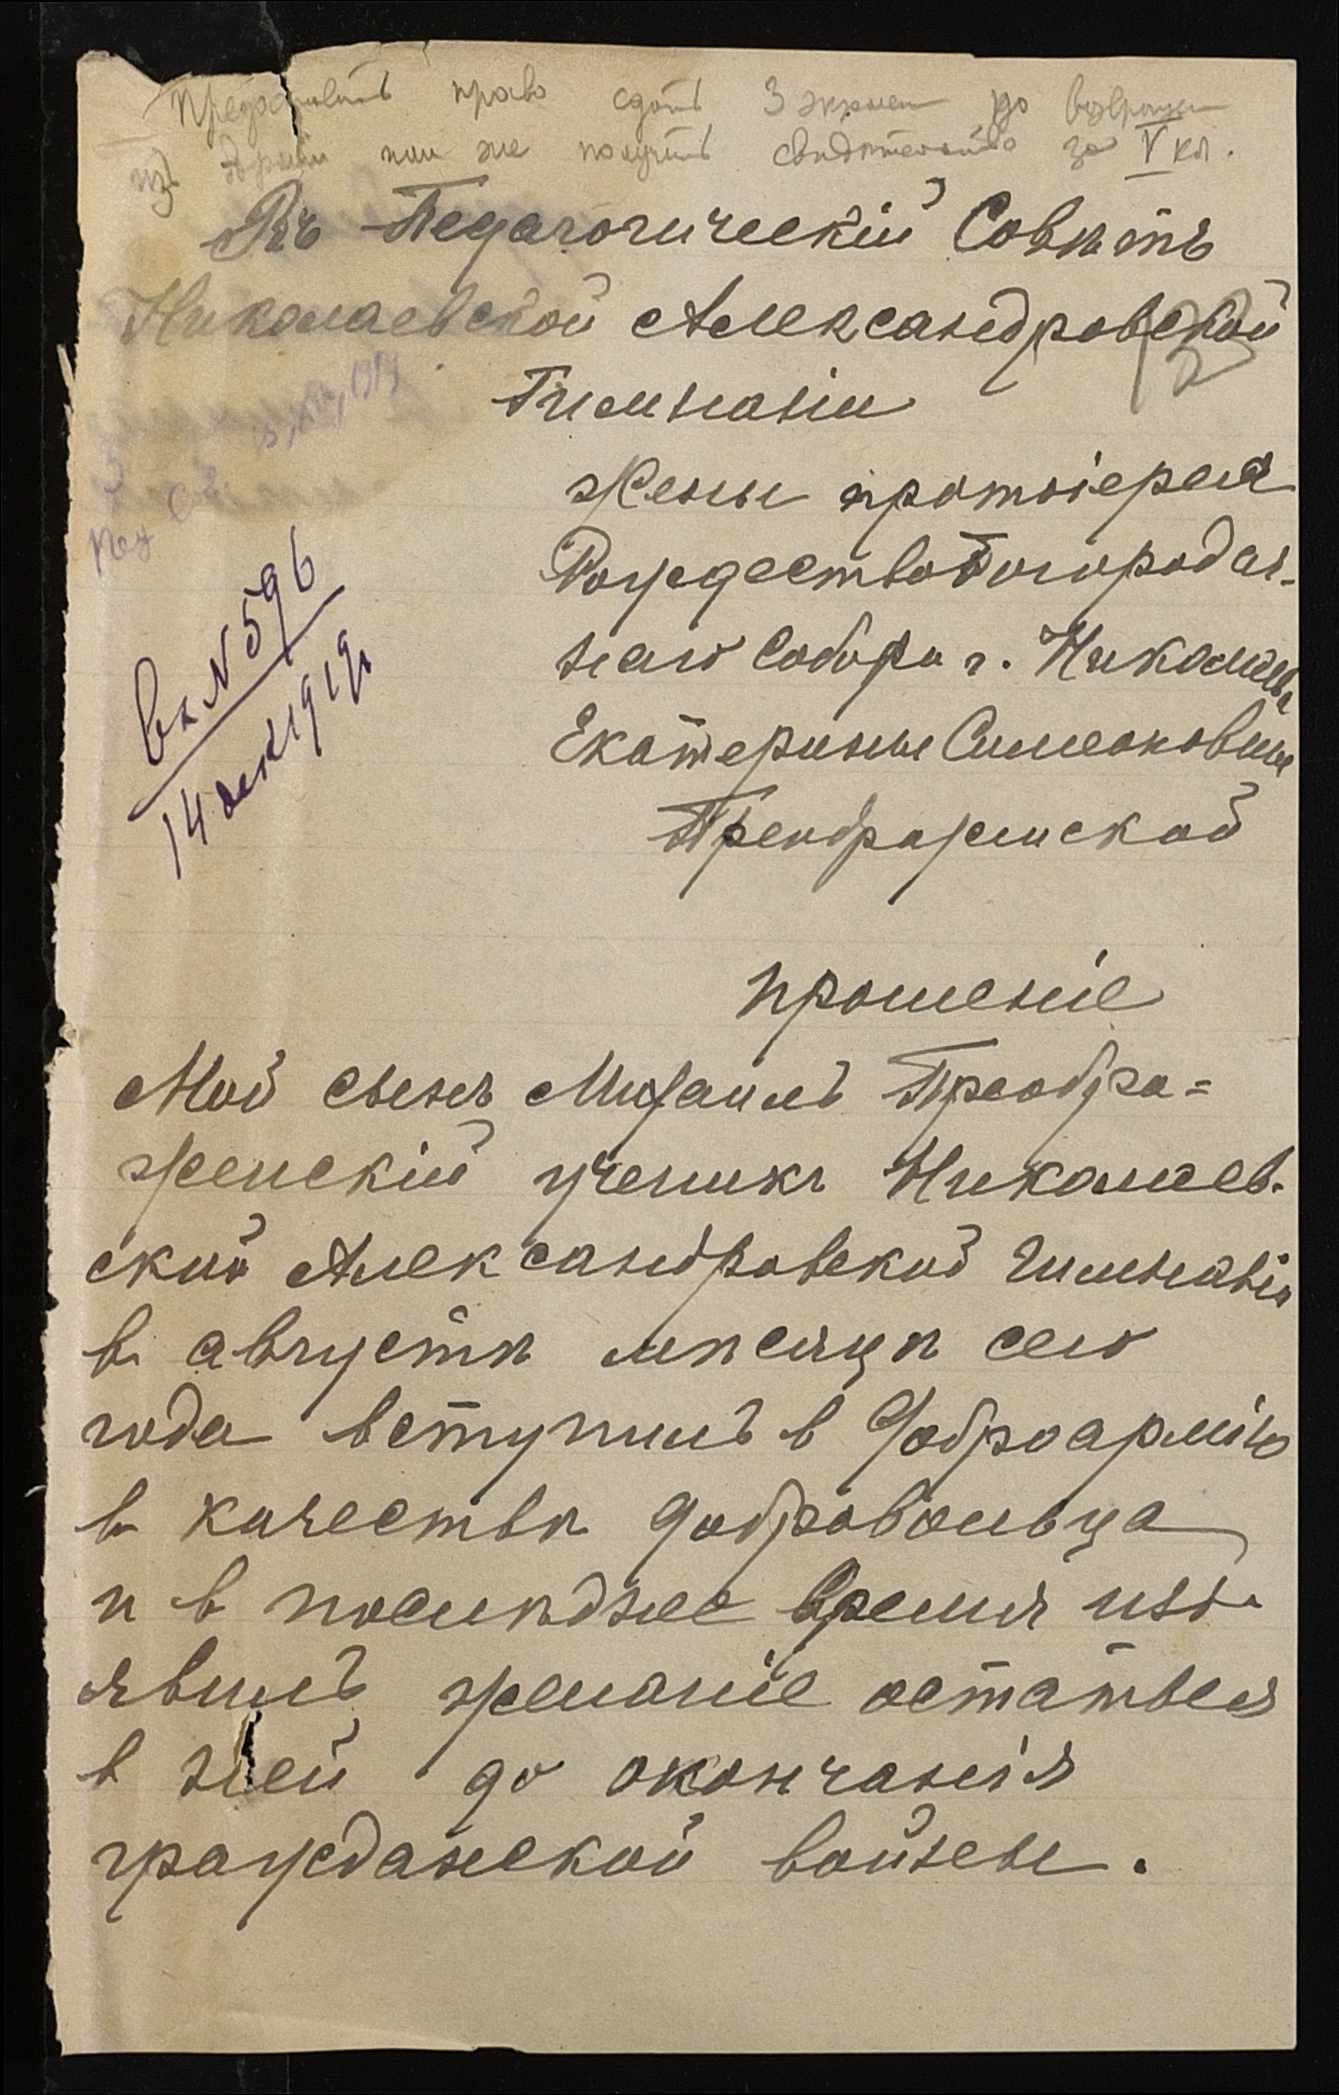 Предоставить право сдать экзамен по возвращен
изъ арміи или же получить свидѣтельство за V кл.
Въ Педагогическій Совѣтъ
Николаевской Александровской
Гимназіи
Жены протоіерея
Рождество Богородич-
наго Собора г. Николаева
Екатерины Симеоновны
Преображенской
вх N 596
14 дек 1919 г
прошеніе
Мой сынъ Михаилъ Преобра=
женскій ученикъ Николаев-
ской Александровской гимназіи
в августѣ мѣсяцѣ сего
года вступилъ в Доброармію
в качествѣ добровольца
и в послѣднее время изъ-
явилъ желаніе остаться
в ней до окончанія
гражданской войны.